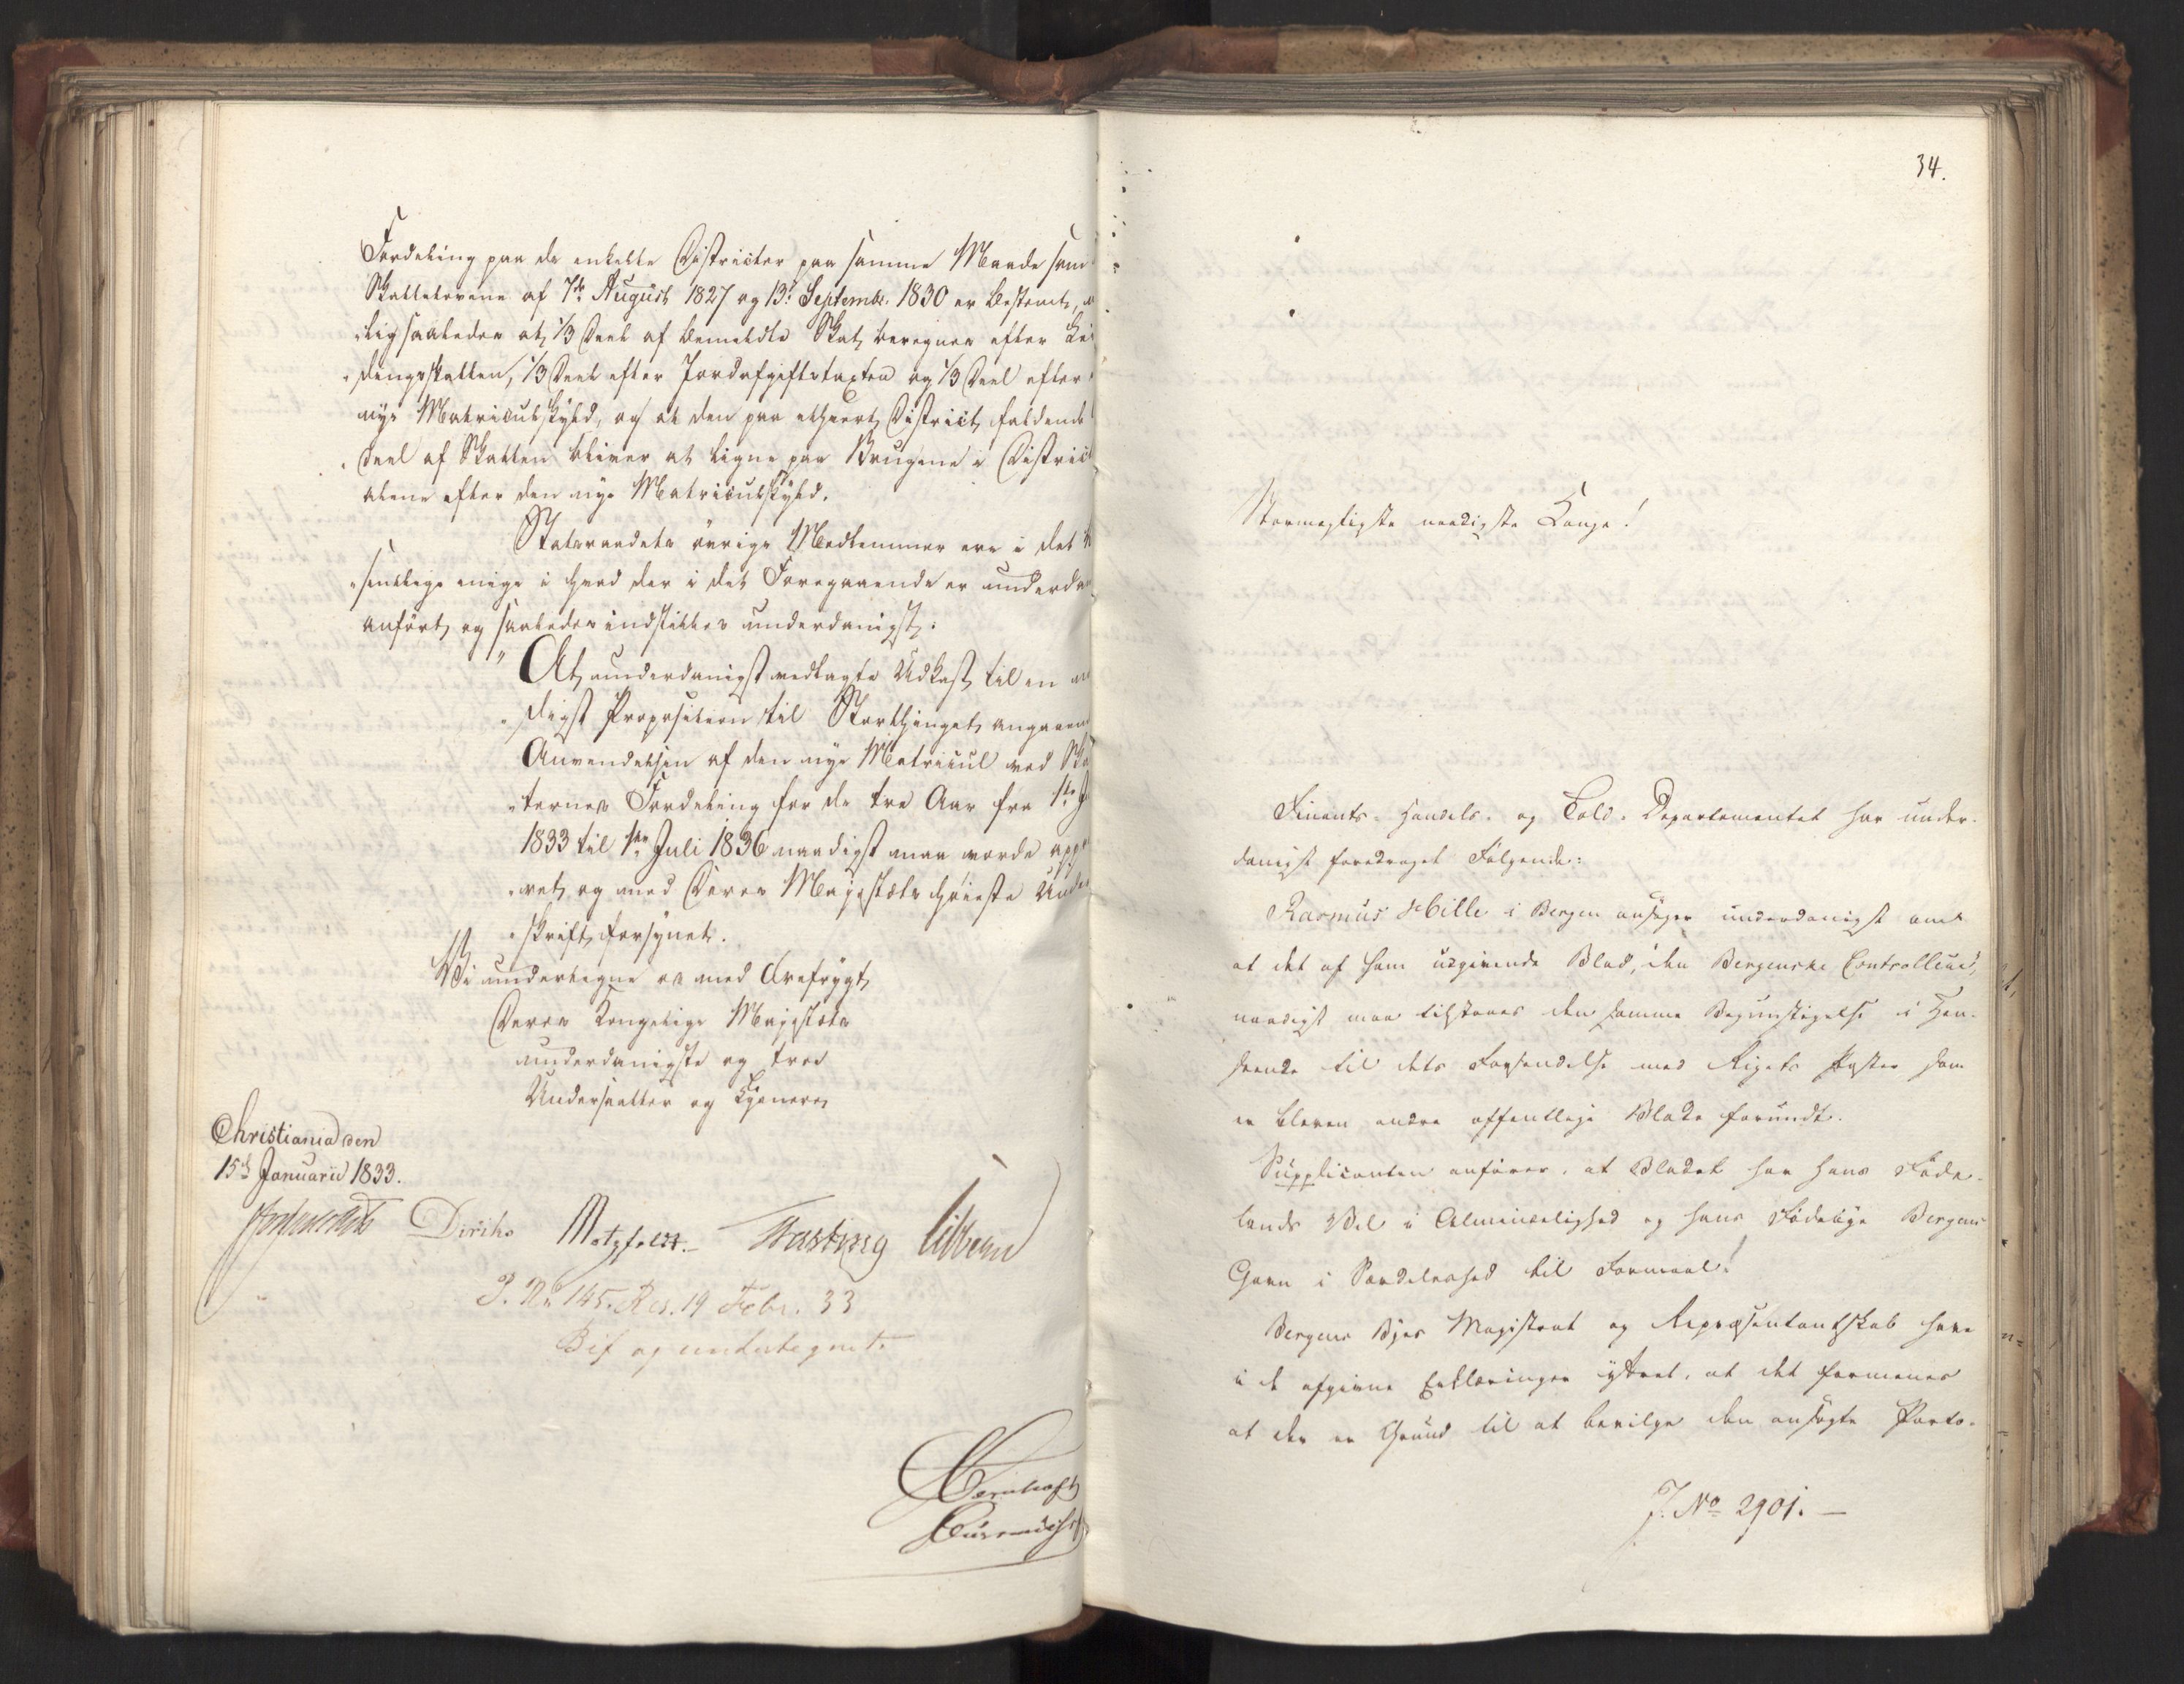 Fordeling paa de enkelte Districter paa samme Maade som
Skattelovene af 7de August 1827 og 13de Septembr. 1830 er bestemt,
ligsaaledes at 1/3 Deel af bemeldte Skat beregnes efter
dingsskatten, 1/3 Deel efter Jordafgiftstaxten og 1/3 Deel efter
nye Matriculskyld, og at den paa ethvert District faldende
Deel af Skatten bliver at ligne paa Brugene i District
alene efter den nye Matriculskyld.
Statsraadets øvrige Medlemmer ere i det
sentlige enige i hvad der i det Foregaaende er underda
anført, og saaledes indstilles underdanigst:
"At underdanigst vedlagte Udkast til en naa
digst Proposition til Storthinget angaaen
Anvendelsen af den nye Matricul ved Ska
ternes Fordeling for de tre Aar fra 1ste J
1833 til 1ste Juli 1836 naadigst maa vorde app
vet, og med Deres Majestæts Høieste Under
skrift forsynet.
Vi undertegne os med Ærefrygt
Deres Kongelige Majestæts
underdanigste og troe
Undersaatter og Tjenere
Christiania den
15de Januarii 1833.
Diriks Motzfeldt. Fasting Vibe
J. No 145. Res. 19 Febr. 33
Bif. og undertegnet.
34.
Stormægtigste naadigste Konge!
Finants- Handels- og Told-Departementet har under-
danigst foredraget Følgende:
Rasmus Hille i Bergen ansøger underdanigst om
at det af ham udgivende Blad, "den Bergenske Controlleur",
naadigst maa tilstaaes den samme Begunstigelse i Hen-
seende til dets Forsendelse med Rigets Poster som
er bleven andre offentlige Blade forundt.
Supplicanten anfører, at Bladet har hans Føde-
lands Vel i Almindelighed og hans Fødebye Bergens
Gavn i Særdeleshed til Formaal.
Bergens Byes Magistrat og Repræsentantskab have
i de afgivne Erklæringer yttret, at det formenes
at der er Grund til at bevilge den ansøgte Porto-
J. No 2901. —